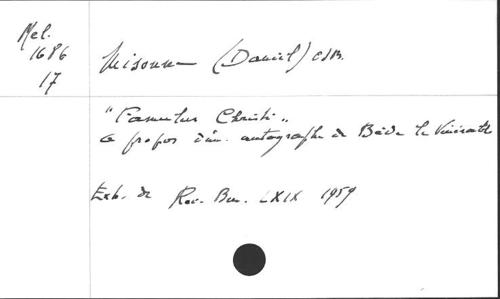 Mel.
1686
17
Misonne (Daniel) OSB.
"Famulus Christi"
a propos d'un autographe de Bède le Vénérable
Extr. de Rev. Ben. LXIX 1959